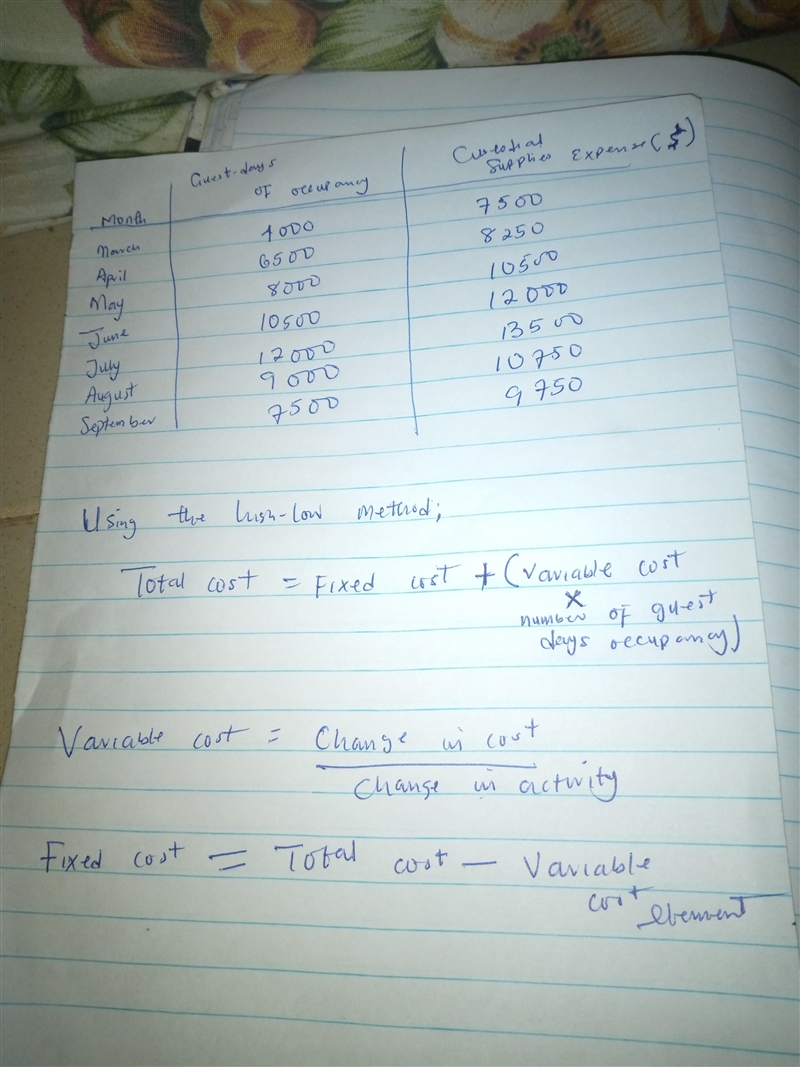 Guest-days Custodial
of occupancy Supplies Expense ($)
Month
March 4000 7500
April 6500 8250
May 8000 10500
June 10500 12000
July 12000 13500
August 9000 10750
September 7500 9750
Using the high-low method;
Total cost = Fixed cost + (Variable cost
×
number of guest
days occupancy)
Variable cost = Change in cost
Change in activity
Fixed cost = Total cost - Variable
cost element